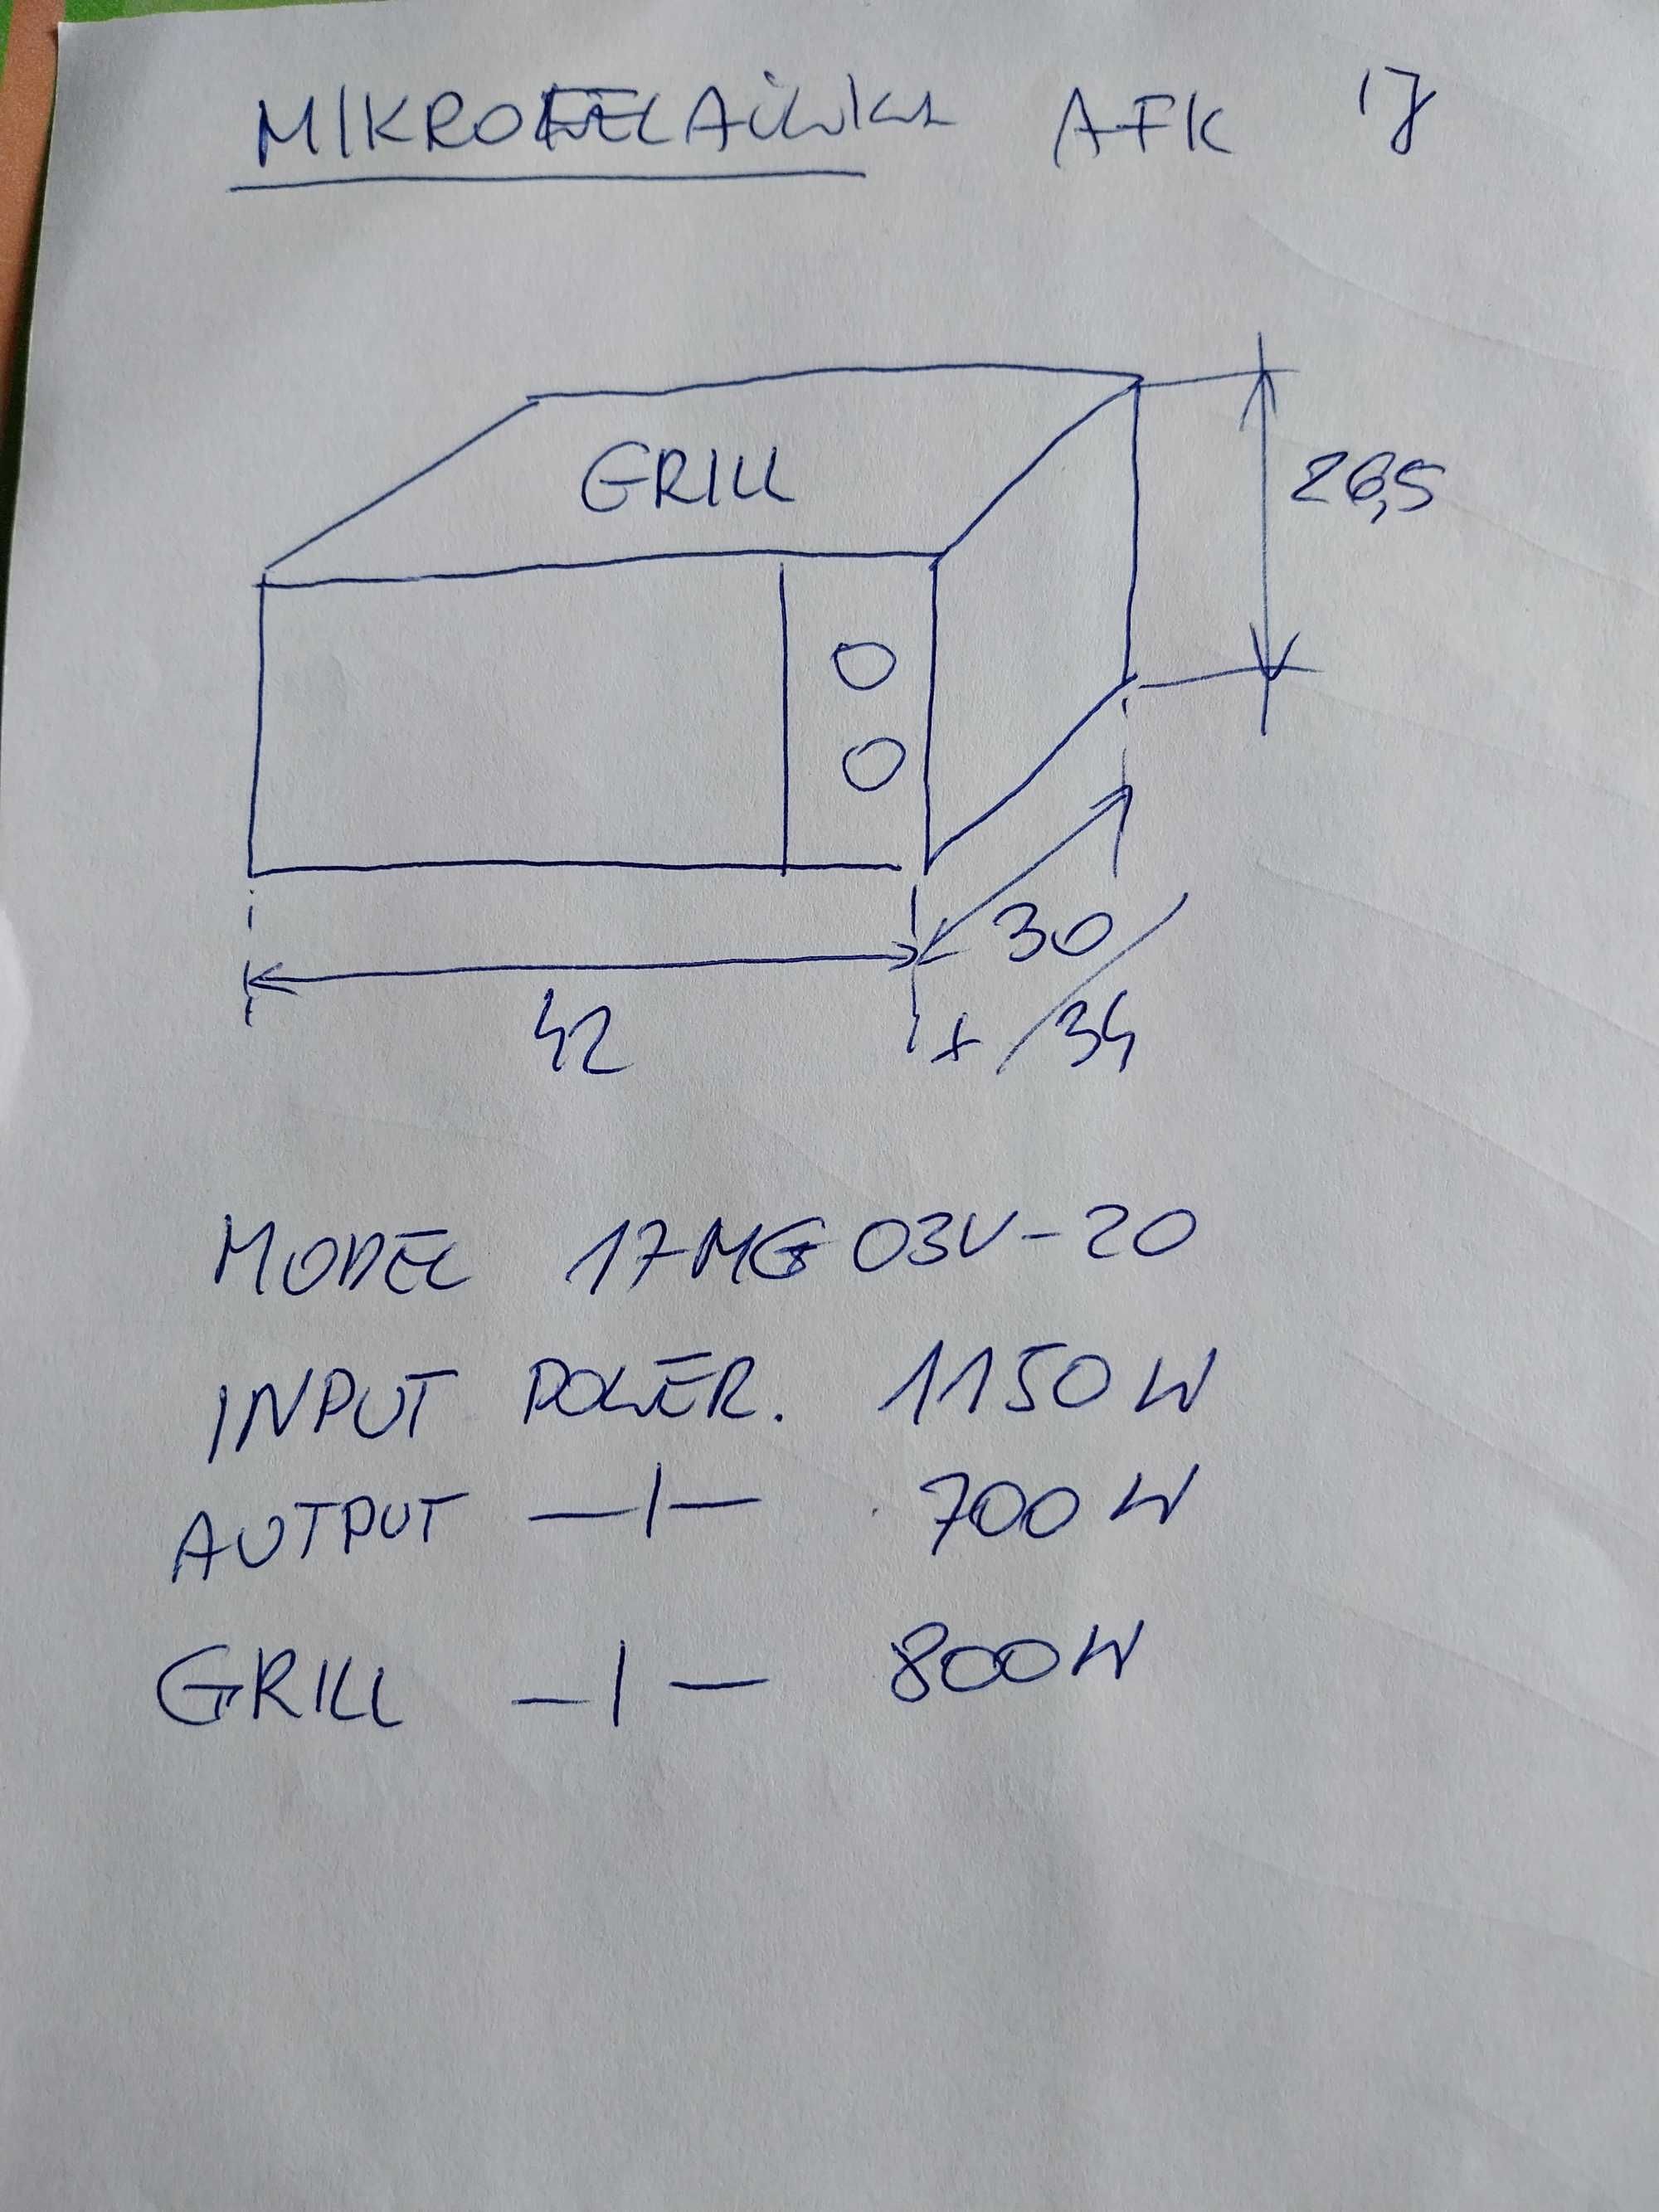 AFK 17
GRILL
26,5
30
42
+/34
MODEL 17MG03V-20
INPUT POWER. 1150W
AUTPUT —|— 700W
GRILL —|— 800W